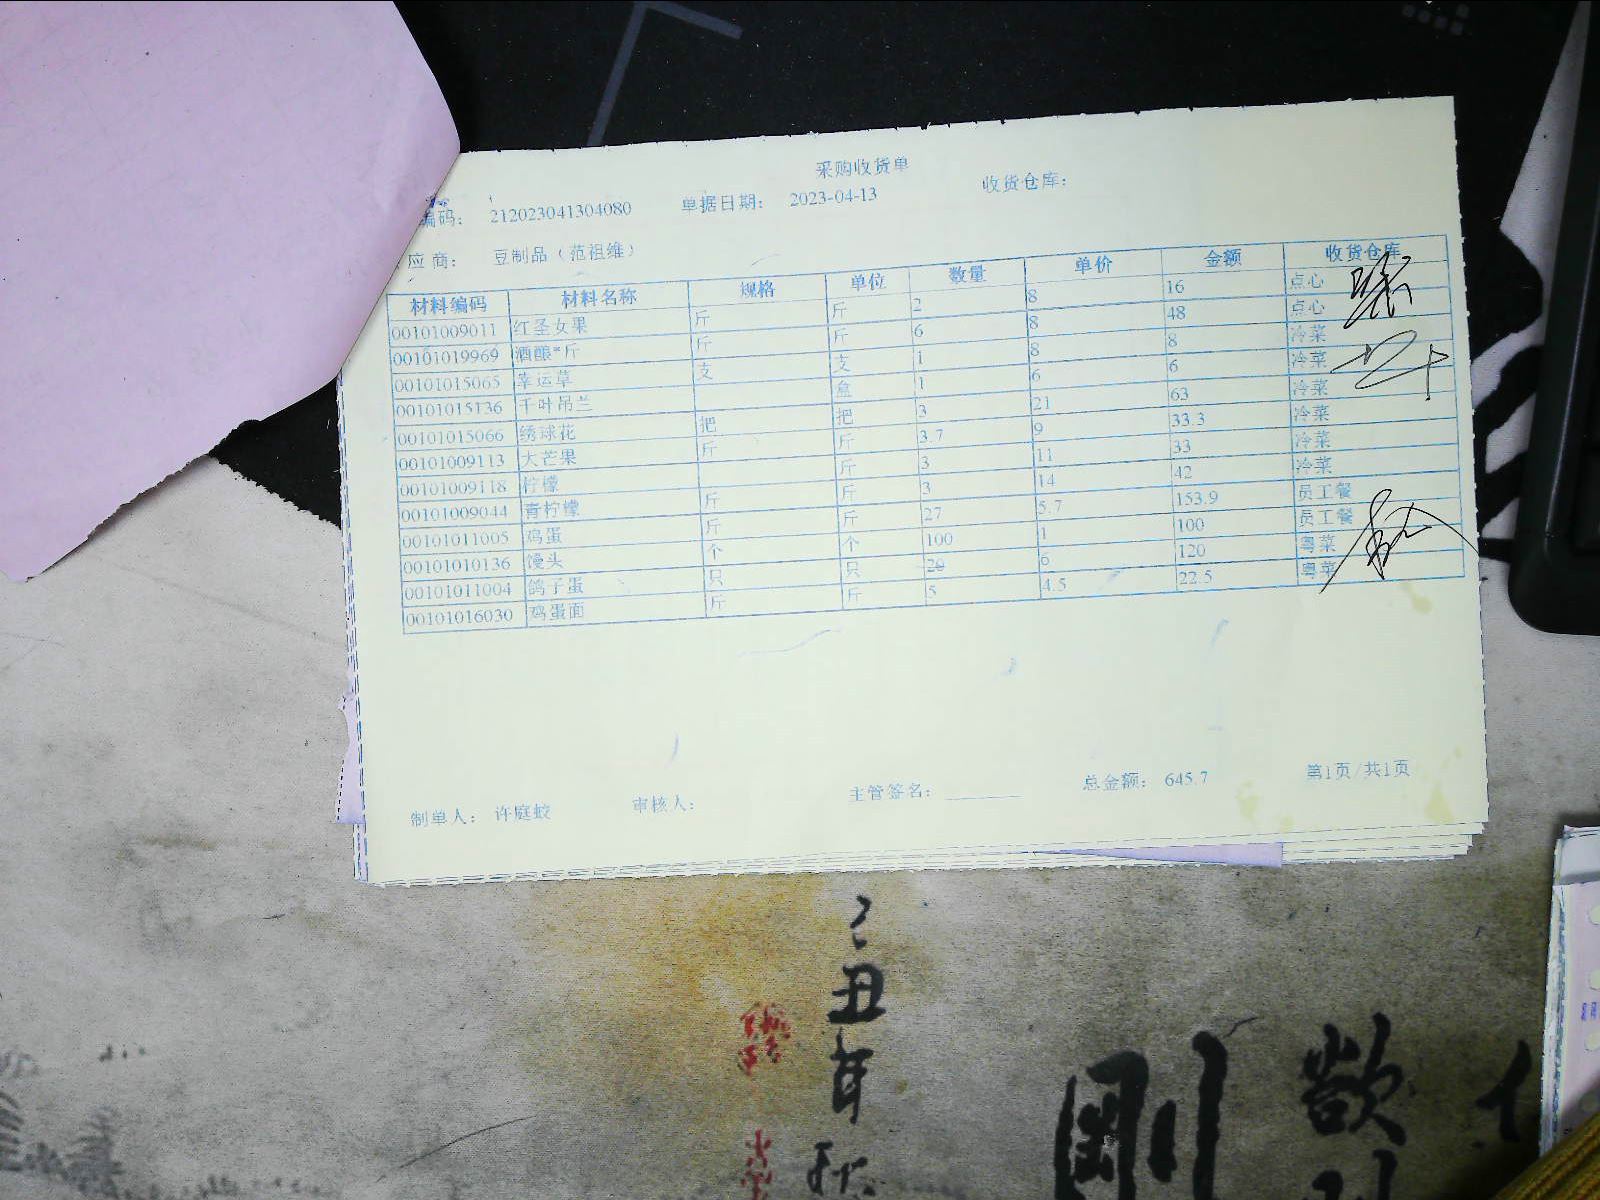 采购收货单
编码： 212023041304080 单据日期： 2023-04-13 收货仓库：
应商： 豆制品（范祖维）
材料编码 材料名称 规格 单位 数量 单价 金额 收货仓库
00101009011 红圣女果 斤 斤 2 8 16 点心
00101019969 酒酿*斤 斤 斤 6 8 48 点心
00101015065 幸运草 支 支 1 8 8 冷菜
00101015136 千叶吊兰 盒 1 6 6 冷菜
00101015066 绣球花 把 把 3 21 63 冷菜
00101009113 大芒果 斤 斤 3.7 9 33.3 冷菜
00101009118 柠檬 斤 3 11 33 冷菜
00101009044 青柠檬 斤 斤 3 14 42 冷菜
00101011005 鸡蛋 斤 斤 27 5.7 153.9 员工餐
00101010136 馒头 个 个 100 1 100 员工餐
00101011004 鸽子蛋 只 只 20 6 120 粤菜
00101016030 鸡蛋面 斤 斤 5 4.5 22.5 粤菜
制单人： 许庭蛟 审核人： 主管签名： 总金额： 645.7 第1页/共1页
丑年
剛
欲